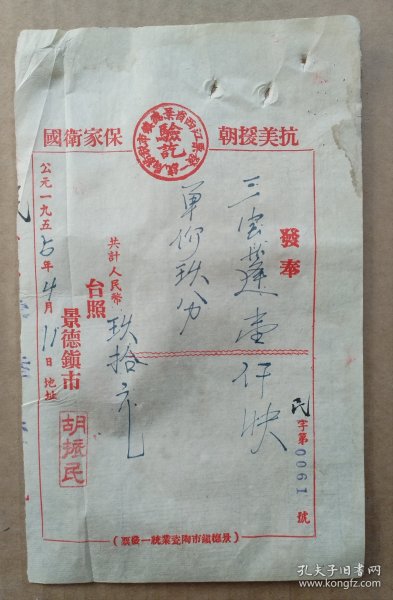 抗美援朝
保家衛國
驗訖
發奉
三
壹仟
單價玖分
共計人民幣 玖拾元
台照
公元一九五5年4月11日 地址
景德鎮市
胡振民
民字第0061號
(景德鎮市陶瓷業統一發票)
孔夫子旧书网
www.kongfz.com